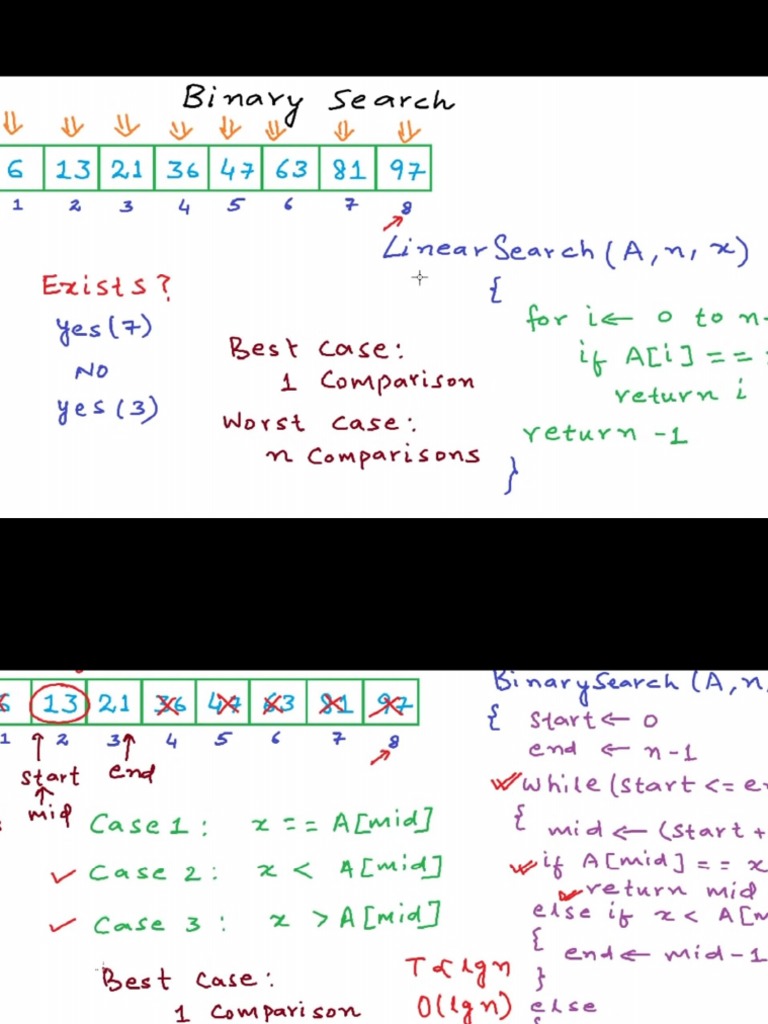 Binary Search
6 13 21 36 47 63 81 97
1 2 3 4 5 6 7 8
LinearSearch(A, n, x)
{
for i← 0 to n-
if A[i] ==
return i
return -1
}
Exists?
yes(7)
NO
yes(3)
Best case:
1 Comparison
Worst case:
n Comparisons
6 13 21 36 47 63 81 97
1 2 3 4 5 6 7 8
start end
mid
Case 1: x == A[mid]
Case 2: x < A[mid]
Case 3: x > A[mid]
Best case:
1 Comparison
T ∝ lg n
O(lg n)
BinarySearch (A, n,
{ start← 0
end ← n-1
while (start <= en
{ mid ← (start +
if A[mid] == x
return mid
else if x < A[m
{ end← mid-1
}
else
{